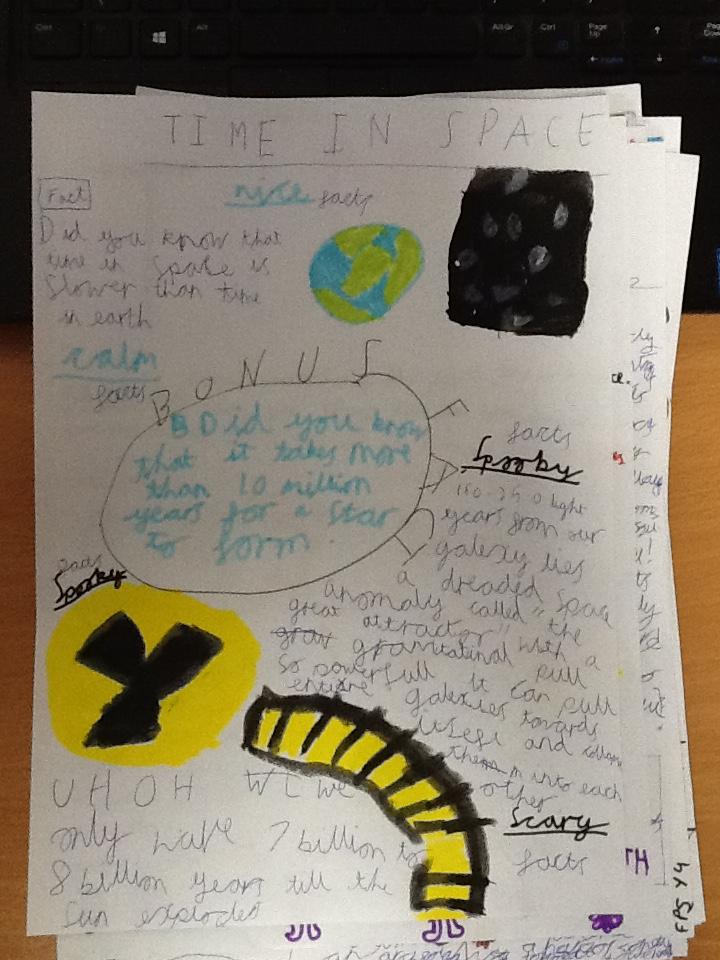 TIME IN SPACE
Fact
nice facts
Did you know that
time in space is
slower than time
in earth
calm
facts
BONUS
B Did you know
that it takes more
than 10 million
years for a star
to form.
FACTS
facts
Spooky
light
years from our
galexy lies
a dreaded space
anomaly called "the
great attractor" with a
gravitational pull
so powerfull it can pull
entire galexies towards
itself and
them into each
other
facts
Spooky
UHOH WE we
only have 7 billion to
8 billion years till the
sun explodes
Scary
facts
FPS Y4
TH
Alt
Alt Gr
Ctrl
Page
Up
Page